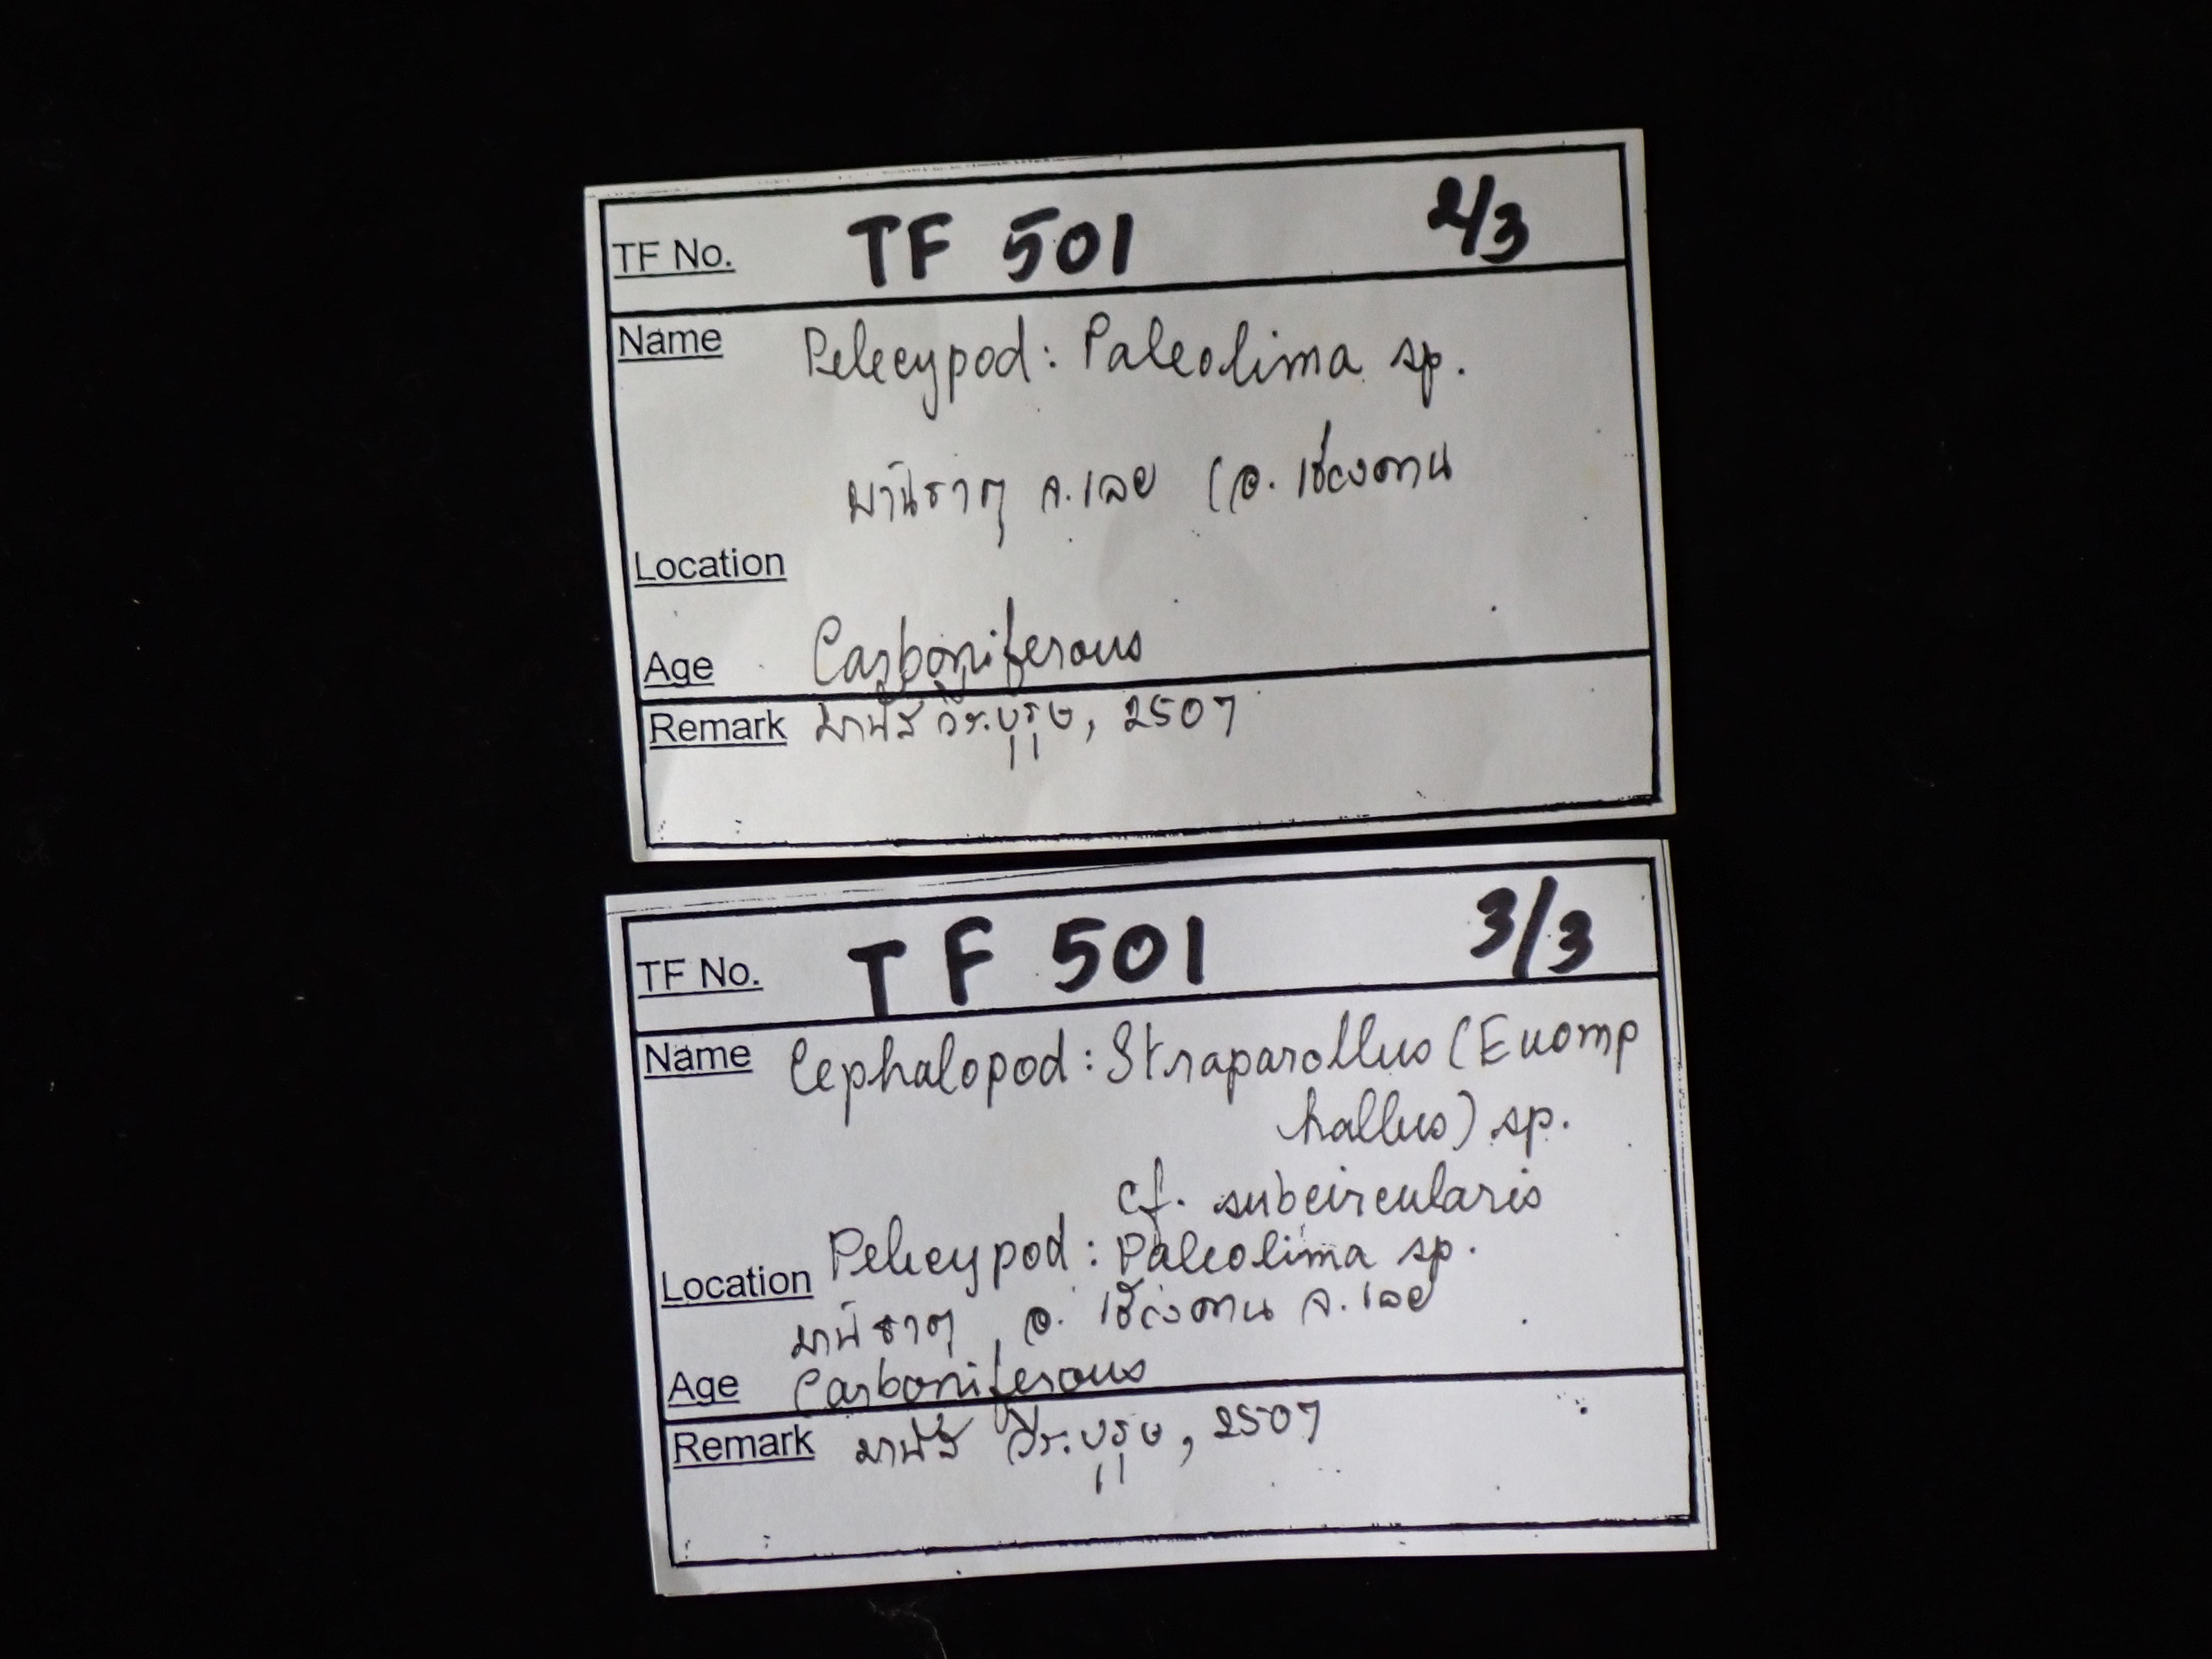 TF No. TF 501 2/3
Name Pelecypod: Paleolima sp.
บ้านธาตุ จ.เลย (อ. เชียงคาน
Location
Age Carboniferous
Remark มานัส วีระบุรุษ, 2507
TF No. TF 501 3/3
Name Cephalopod: Straparollus (Euomp
hallus) sp.
cf. subcircularis
Pelecypod: Paleolima sp.
Location
บ้านธาตุ อ. เชียงคาน จ.เลย
Age Carboniferous
Remark มานัส วีระบุรุษ, 2507